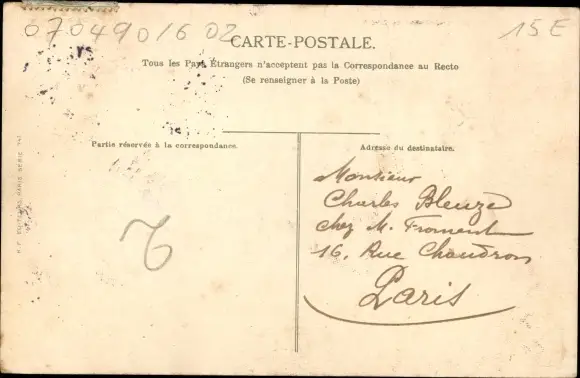 0704901602
15E
CARTE-POSTALE.
Tous les Pays Étrangers n'acceptent pas la Correspondance au Recto
(Se renseigner à la Poste)
Partie réservée à la correspondance.
Adresse du destinataire.
Monsieur
Charles Bleuzé
chez M. Froment
16, Rue Chaudron
Paris